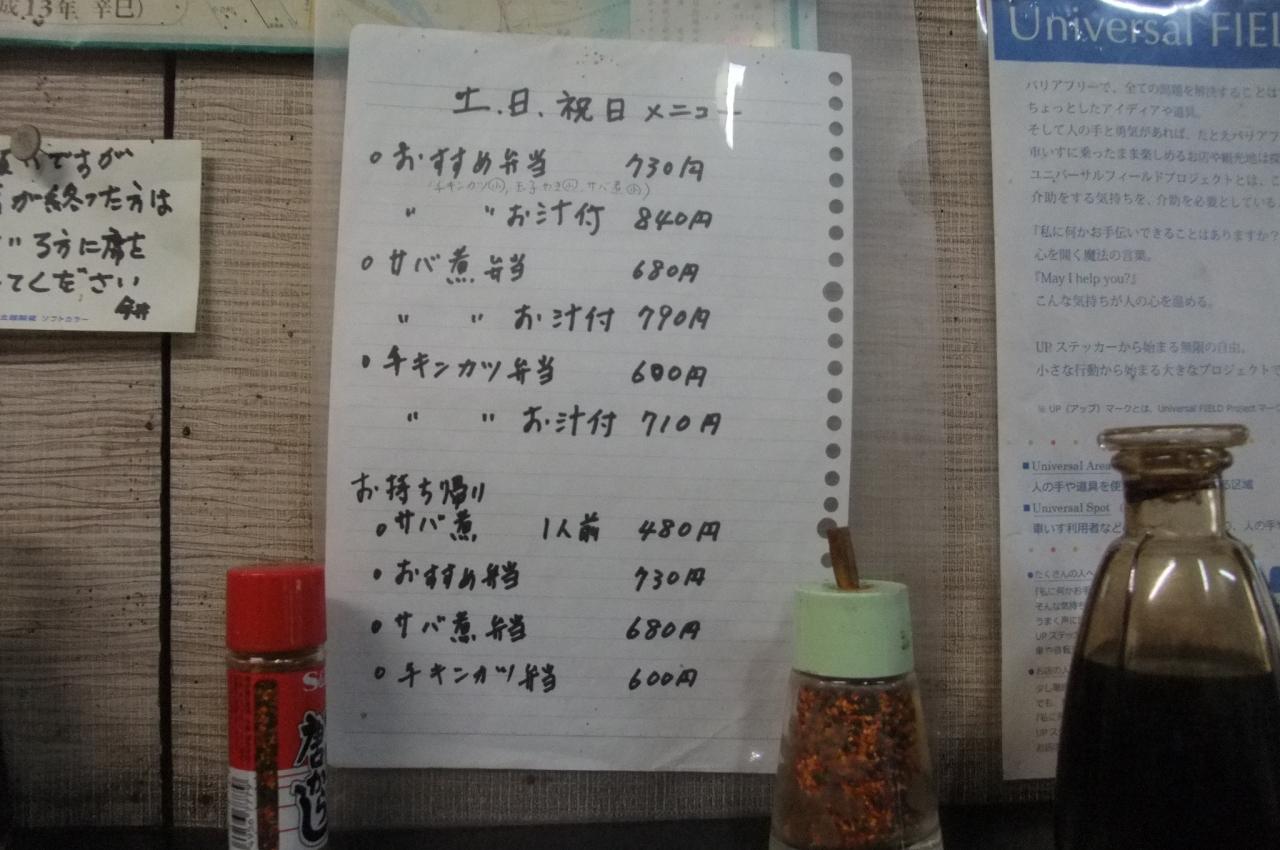 成13年 辛巳)
ですが
が終った方は
る方に席を
てください
今井
ソフトカラー
土.日.祝日 メニュー
おすすめ弁当 730円
(チキンカツ小, 玉子やき小, サバ煮小)
〃 〃お汁付 840円
サバ煮 弁当 680円
〃 〃 お汁付 790円
チキンカツ弁当 600円
〃 〃 お汁付 710円
お持ち帰り
サバ煮 1人前 480円
おすすめ弁当 730円
サバ煮 弁当 680円
チキンカツ弁当 600円
S&B
唐がらし
Universal FIEL
バリアフリーで、全ての問題を解決することは
ちょっとしたアイディアや道具。
そして人の手と勇気があれば、たとえバリアフ
車いすに乗ったまま楽しめるお店や観光地は
ユニバーサルフィールドプロジェクトとは、こ
介助をする気持ちを、介助を必要としている
『私に何かお手伝いできることはありますか?
心を開く魔法の言葉。
『May I help you?』
こんな気持ちが人の心を温める。
UP ステッカーから始まる無限の自由。
小さな行動から始まる大きなプロジェクトで
※ UP (アップ) マークとは、Universal FIELD Project マー
■ Universal Area
人の手や道具を使 る区域
■ Universal Spot
車いす利用者など 、人の手
●たくさんの人へ
『私に何かお手
そんな気持ち
うまく声に
UP ステッ
車や自転
●お店の人
少し
でも、
『私に
UP ス
お店